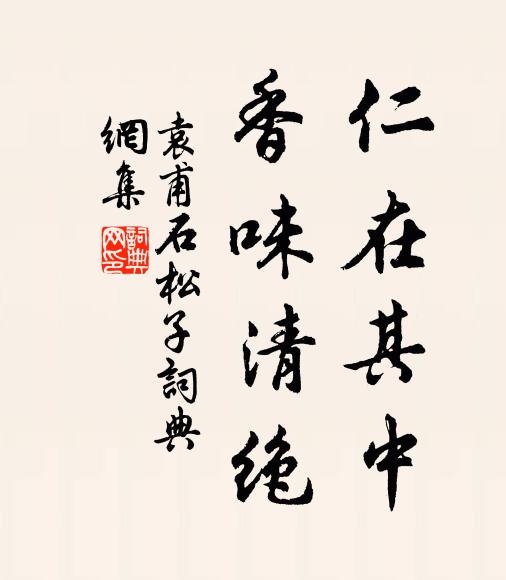 仁在其中
香味清絶
袁甫石松子詞典
網集
詞典
网印